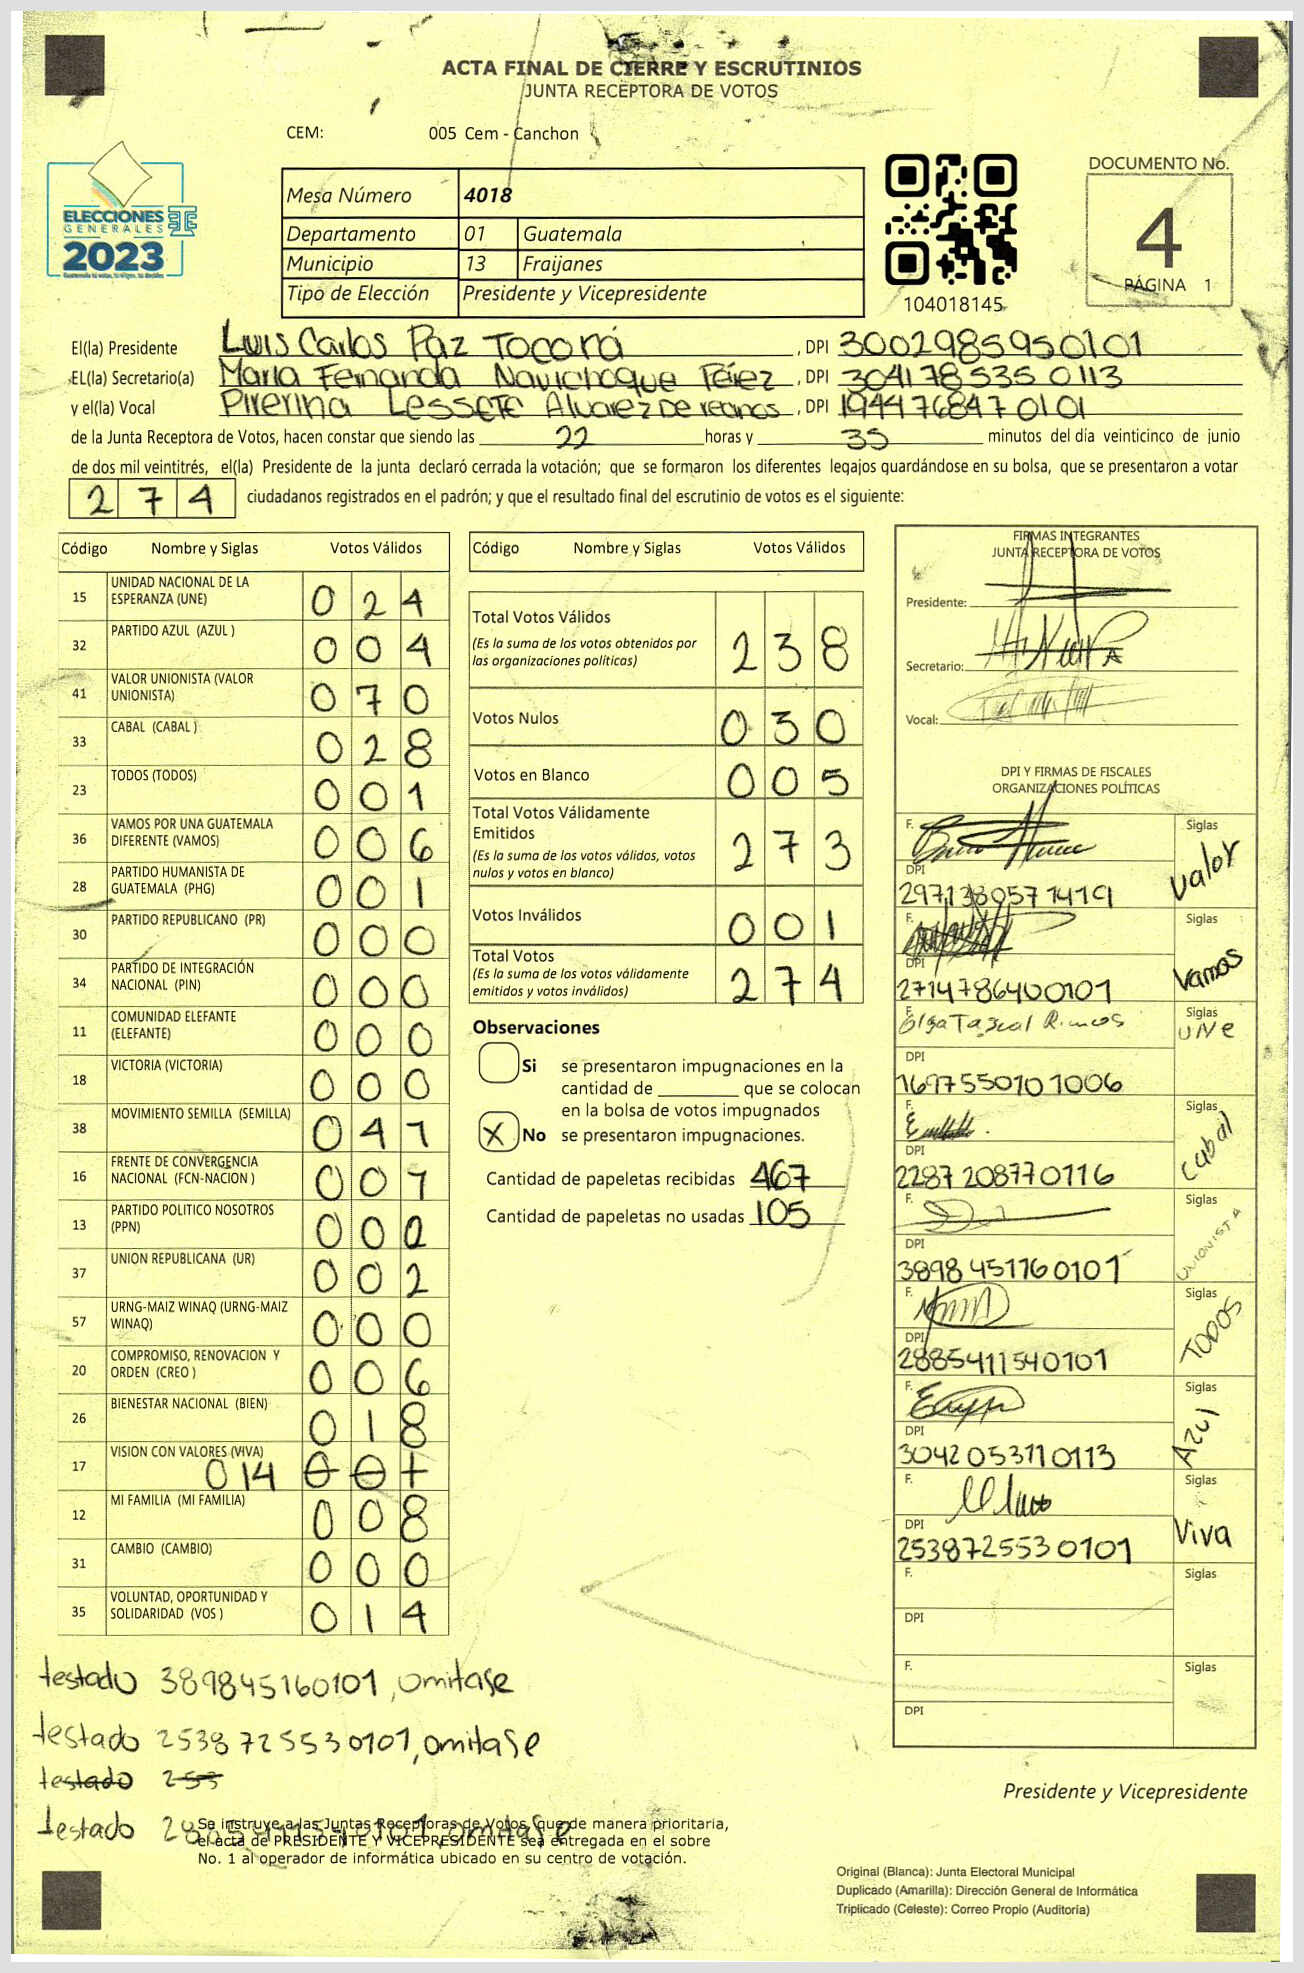 ACTA FINAL DE CIERRE Y ESCRUTINIOS
JUNTA RECEPTORA DE VOTOS
CEM: 005 Cem - Canchon
ELECCIONES
GENERALES
2023
Mesa Número 4018
Departamento 01 Guatemala
Municipio 13 Fraijanes
Tipo de Elección Presidente y Vicepresidente
104018145
DOCUMENTO No.
4
PÁGINA 1
El(la) Presidente Luis Carlos Paz Tocorá, DPI 3002985950101
EL(la) Secretario(a) María Fernanda Navichoque Pérez, DPI 3041785350113
y el(la) Vocal Pierina Lessete Alvarez De, DPI 1944768470101
de la Junta Receptora de Votos, hacen constar que siendo las 22 horas y 35 minutos del dia veinticinco de junio
de dos mil veintitrés, el(la) Presidente de la junta declaró cerrada la votación; que se formaron los diferentes legajos quardándose en su bolsa, que se presentaron a votar
274 ciudadanos registrados en el padrón; y que el resultado final del escrutinio de votos es el siguiente:
Código Nombre y Siglas Votos Válidos
15 UNIDAD NACIONAL DE LA ESPERANZA (UNE) 024
32 PARTIDO AZUL (AZUL ) 004
41 VALOR UNIONISTA (VALOR UNIONISTA) 070
33 CABAL (CABAL ) 028
23 TODOS (TODOS) 001
36 VAMOS POR UNA GUATEMALA DIFERENTE (VAMOS) 006
28 PARTIDO HUMANISTA DE GUATEMALA (PHG) 001
30 PARTIDO REPUBLICANO (PR) 000
34 PARTIDO DE INTEGRACIÓN NACIONAL (PIN) 000
11 COMUNIDAD ELEFANTE (ELEFANTE) 000
18 VICTORIA (VICTORIA) 000
38 MOVIMIENTO SEMILLA (SEMILLA) 041
16 FRENTE DE CONVERGENCIA NACIONAL (FCN-NACION ) 001
13 PARTIDO POLITICO NOSOTROS (PPN) 002
37 UNION REPUBLICANA (UR) 002
57 URNG-MAIZ WINAQ (URNG-MAIZ WINAQ) 000
20 COMPROMISO, RENOVACION Y ORDEN (CREO ) 006
26 BIENESTAR NACIONAL (BIEN) 018
17 VISION CON VALORES (VIVA) 014 001
12 MI FAMILIA (MI FAMILIA) 008
31 CAMBIO (CAMBIO) 000
35 VOLUNTAD, OPORTUNIDAD Y SOLIDARIDAD (VOS ) 014
Código Nombre y Siglas Votos Válidos
Total Votos Válidos 238
(Es la suma de los votos obtenidos por las organizaciones políticas)
Votos Nulos 030
Votos en Blanco 005
Total Votos Válidamente Emitidos 273
(Es la suma de los votos válidos, votos nulos y votos en blanco)
Votos Inválidos 001
Total Votos 274
(Es la suma de los votos válidamente emitidos y votos inválidos)
Observaciones
Si se presentaron impugnaciones en la
cantidad de ________ que se colocan
en la bolsa de votos impugnados
X No se presentaron impugnaciones.
Cantidad de papeletas recibidas 467
Cantidad de papeletas no usadas 105
FIRMAS INTEGRANTES
JUNTA RECEPTORA DE VOTOS
Presidente:
Secretario:
Vocal:
DPI Y FIRMAS DE FISCALES
ORGANIZACIONES POLÍTICAS
F. Siglas Valor
DPI
2971380571419
F. Siglas Vamos
DPI
2714786400101
F. Olga Siglas UNE
DPI
1697550101006
F. Siglas Cabal
DPI
2287208770116
F. Siglas UNIONISTA
DPI
3898451160101
F. Siglas TODOS
DPI
2885411540101
F. Siglas Azul
DPI
3042053110113
F. Siglas Viva
DPI
2538725530101
F. Siglas
DPI
F. Siglas
DPI
testado 389845160101, omitase
testado 2538725530101, omitase
testado 253
testado omitase
Se instruye a las Juntas Receptoras de Votos, que de manera prioritaria,
el acta de PRESIDENTE Y VICEPRESIDENTE sea entregada en el sobre
No. 1 al operador de informática ubicado en su centro de votación.
Presidente y Vicepresidente
Original (Blanca): Junta Electoral Municipal
Duplicado (Amarilla): Dirección General de Informática
Triplicado (Celeste): Correo Propio (Auditoría)